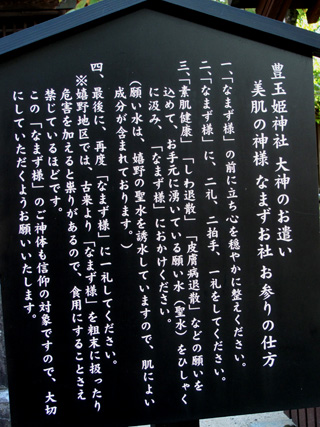 豊玉姫神社 大神のお遣い
美肌の神様 なまずお社 お参りの仕方
一、「なまず様」の前に立ち心を穏やかに整えください。
二、「なまず様」に、二礼、二拍手、一礼をしてください。
三、「素肌健康」「しわ退散」「皮膚病退散」などの願いを
込めて、お手元に湧いている願い水（聖水）をひしゃく
に汲み、「なまず様」におかけください。
（願い水は、嬉野の聖水を誘水していますので、肌によい
成分が含まれております。）
四、最後に、再度、「なまず様」に一礼してください。
※嬉野地区では、古来より「なまず様」を粗末に扱ったり
危害を加えると祟りがあるので、食用にすることさえ
禁じているほどです。
この「なまず様」のご神体も信仰の対象ですので、大切
にしていただくようお願いいたします。